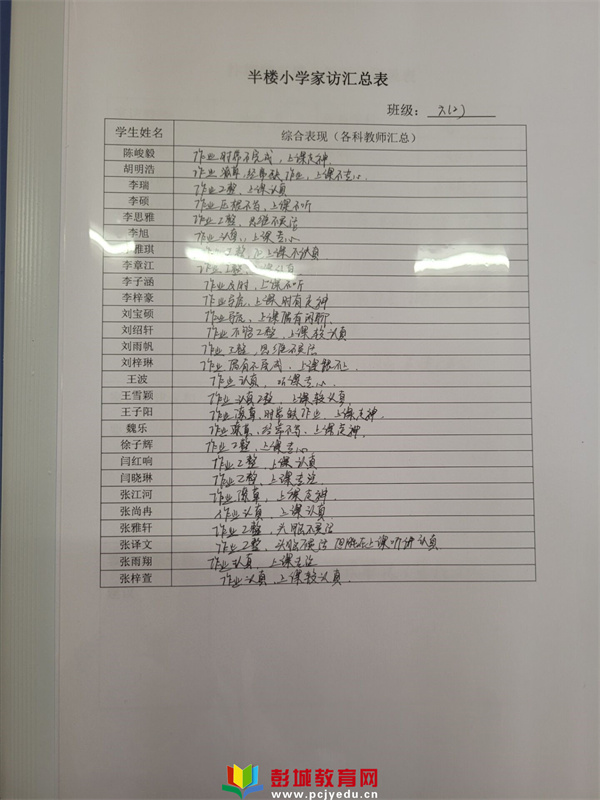 半楼小学家访汇总表
班级: 六(2)
学生姓名 综合表现（各科教师汇总）
陈峻毅 作业时常不完成，上课走神
胡明浩 作业潦草，经常缺作业，上课不专心
李瑞 作业工整，上课认真
李硕 作业应付不写，上课不听
李思雅 作业工整，思维不灵活
李旭 作业认真，上课专心
雅琪 工整，上课不认真
李章江 作业工整
李子涵 作业及时，上课不听
李梓豪 作业，上课时有走神
刘宝硕 作业，上课偶有闲聊
刘绍轩 作业不够工整，上课较认真
刘雨帆 作业工整，思维不灵活
刘梓琳 作业偶有不完成，上课
王波 作业认真，听课专心
王雪颖 作业认真工整，上课较认真
王子阳 作业潦草，时常缺作业，上课走神
魏乐 作业潦草，经常不写，上课走神
徐子辉 作业工整，上课专心
闫红响 作业工整，上课认真
闫晓琳 作业工整，上课专注
张江河 作业潦草，上课走神
张尚冉 作业认真，上课认真
张雅轩 作业工整，头脑不灵活
张译文 作业工整，头脑不灵活 但能在上课听讲认真
张雨翔 作业认真，上课专注
张梓萱 作业认真，上课较认真
彭城教育网
www.pcjyedu.cn